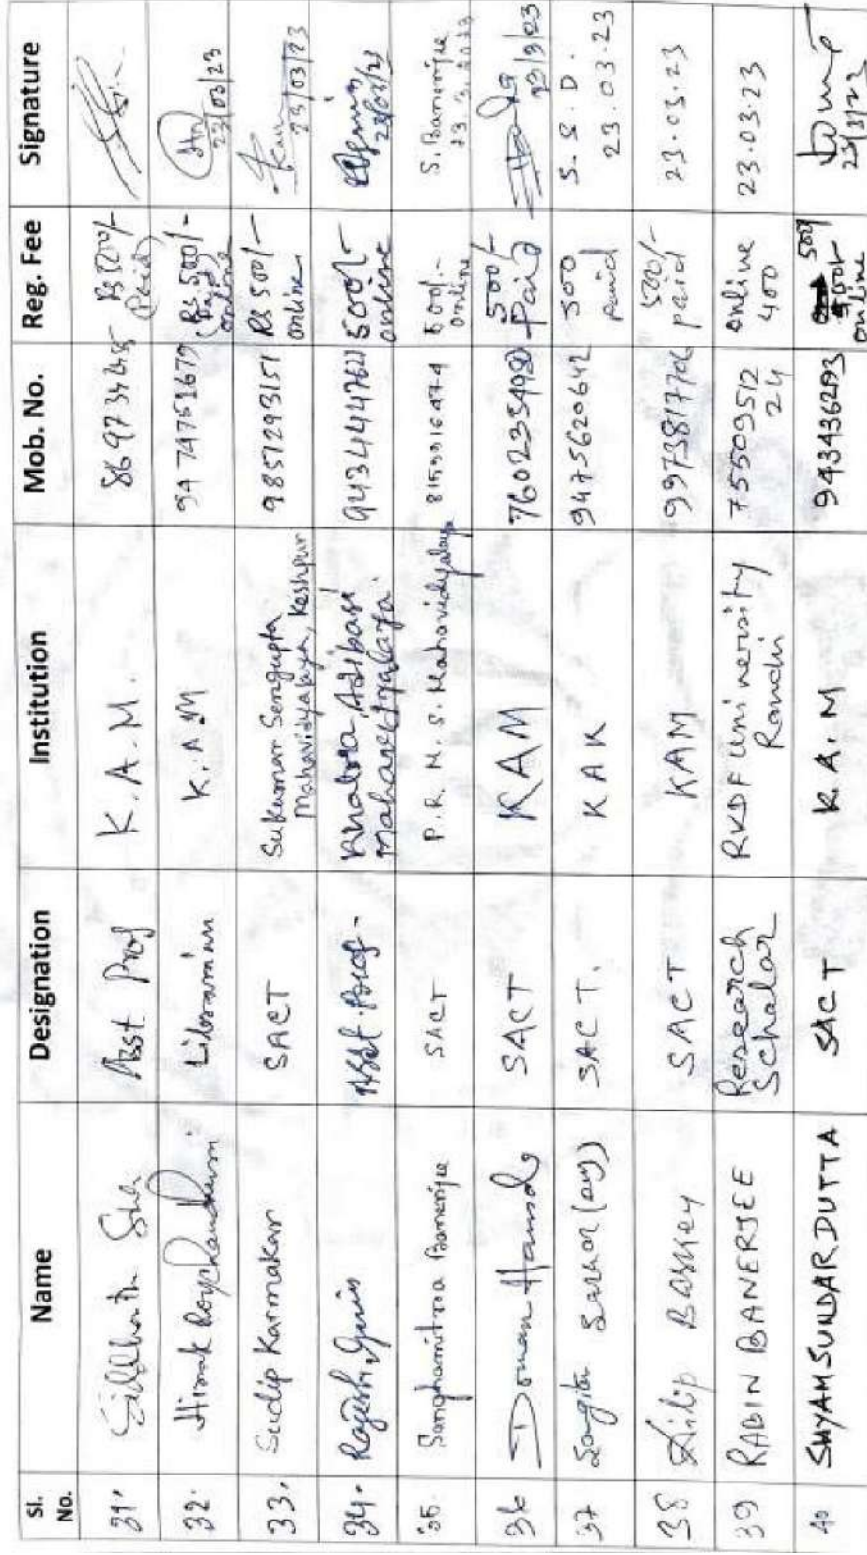 Sl. No. Name Designation Institution Mob. No. Reg. Fee Signature
31. Siddhartha Sha Asst Prof K.A.M. Rs 500/- (Paid)
32. Hirak Roychaudhuri Librarian K.A.M 9474751679 Rs 500/- online 23/03/23
33. Sudip Karmakar SACT Sukumar Sengupta Mahavidyalaya, Keshpur 9851293151 Rs 500/- online 23/03/23
34. Rajesh Guin Asst. Prof. Khatra Adibasi Mahavidyalaya. 500/- online 23/03/23
35. Sanghamitra Banerjee SACT P.R.M.S. Mahavidyalaya 500/- online S. Banerjee 23.3.2023
36 Doman Hansda SACT KAM 500/- Paid 23/3/23
37 Sangita SACT. KAK 9475620642 500 paid S.S.D. 23.03.23
38 Dilip SACT KAM 500/- paid 23.03.23
39 RABIN BANERJEE Research Scholar RKDF University Ranchi 7550951224 online 400 23.03.23
40 SHYAM SUNDAR DUTTA SACT K.A.M 943436293 500/- online 23/3/23